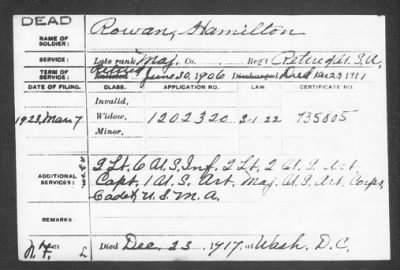 DEAD
NAME OF SOLDIER: Rowan, Hamilton
SERVICE: Late rank Maj. Co. Reg't Retired U.S.A.
TERM OF SERVICE: Retired Enlisted June 30, 1906 Discharged Died Dec 23 1917
DATE OF FILING. CLASS. APPLICATION NO. LAW CERTIFICATE NO.
Invalid,
1923, Mar 7 Widow, 1202320 3-1 22 935805
Minor,
ADDITIONAL SERVICES: 2 Lt. 6 U.S. Inf. 2 Lt. 2 U.S. Art.
Capt. 1 U.S. Art. Maj. U.S. Art. Corps,
Cadet U.S.M.A.
REMARKS:
N.F. L Died Dec. 23, 1917, at Wash. D.C.